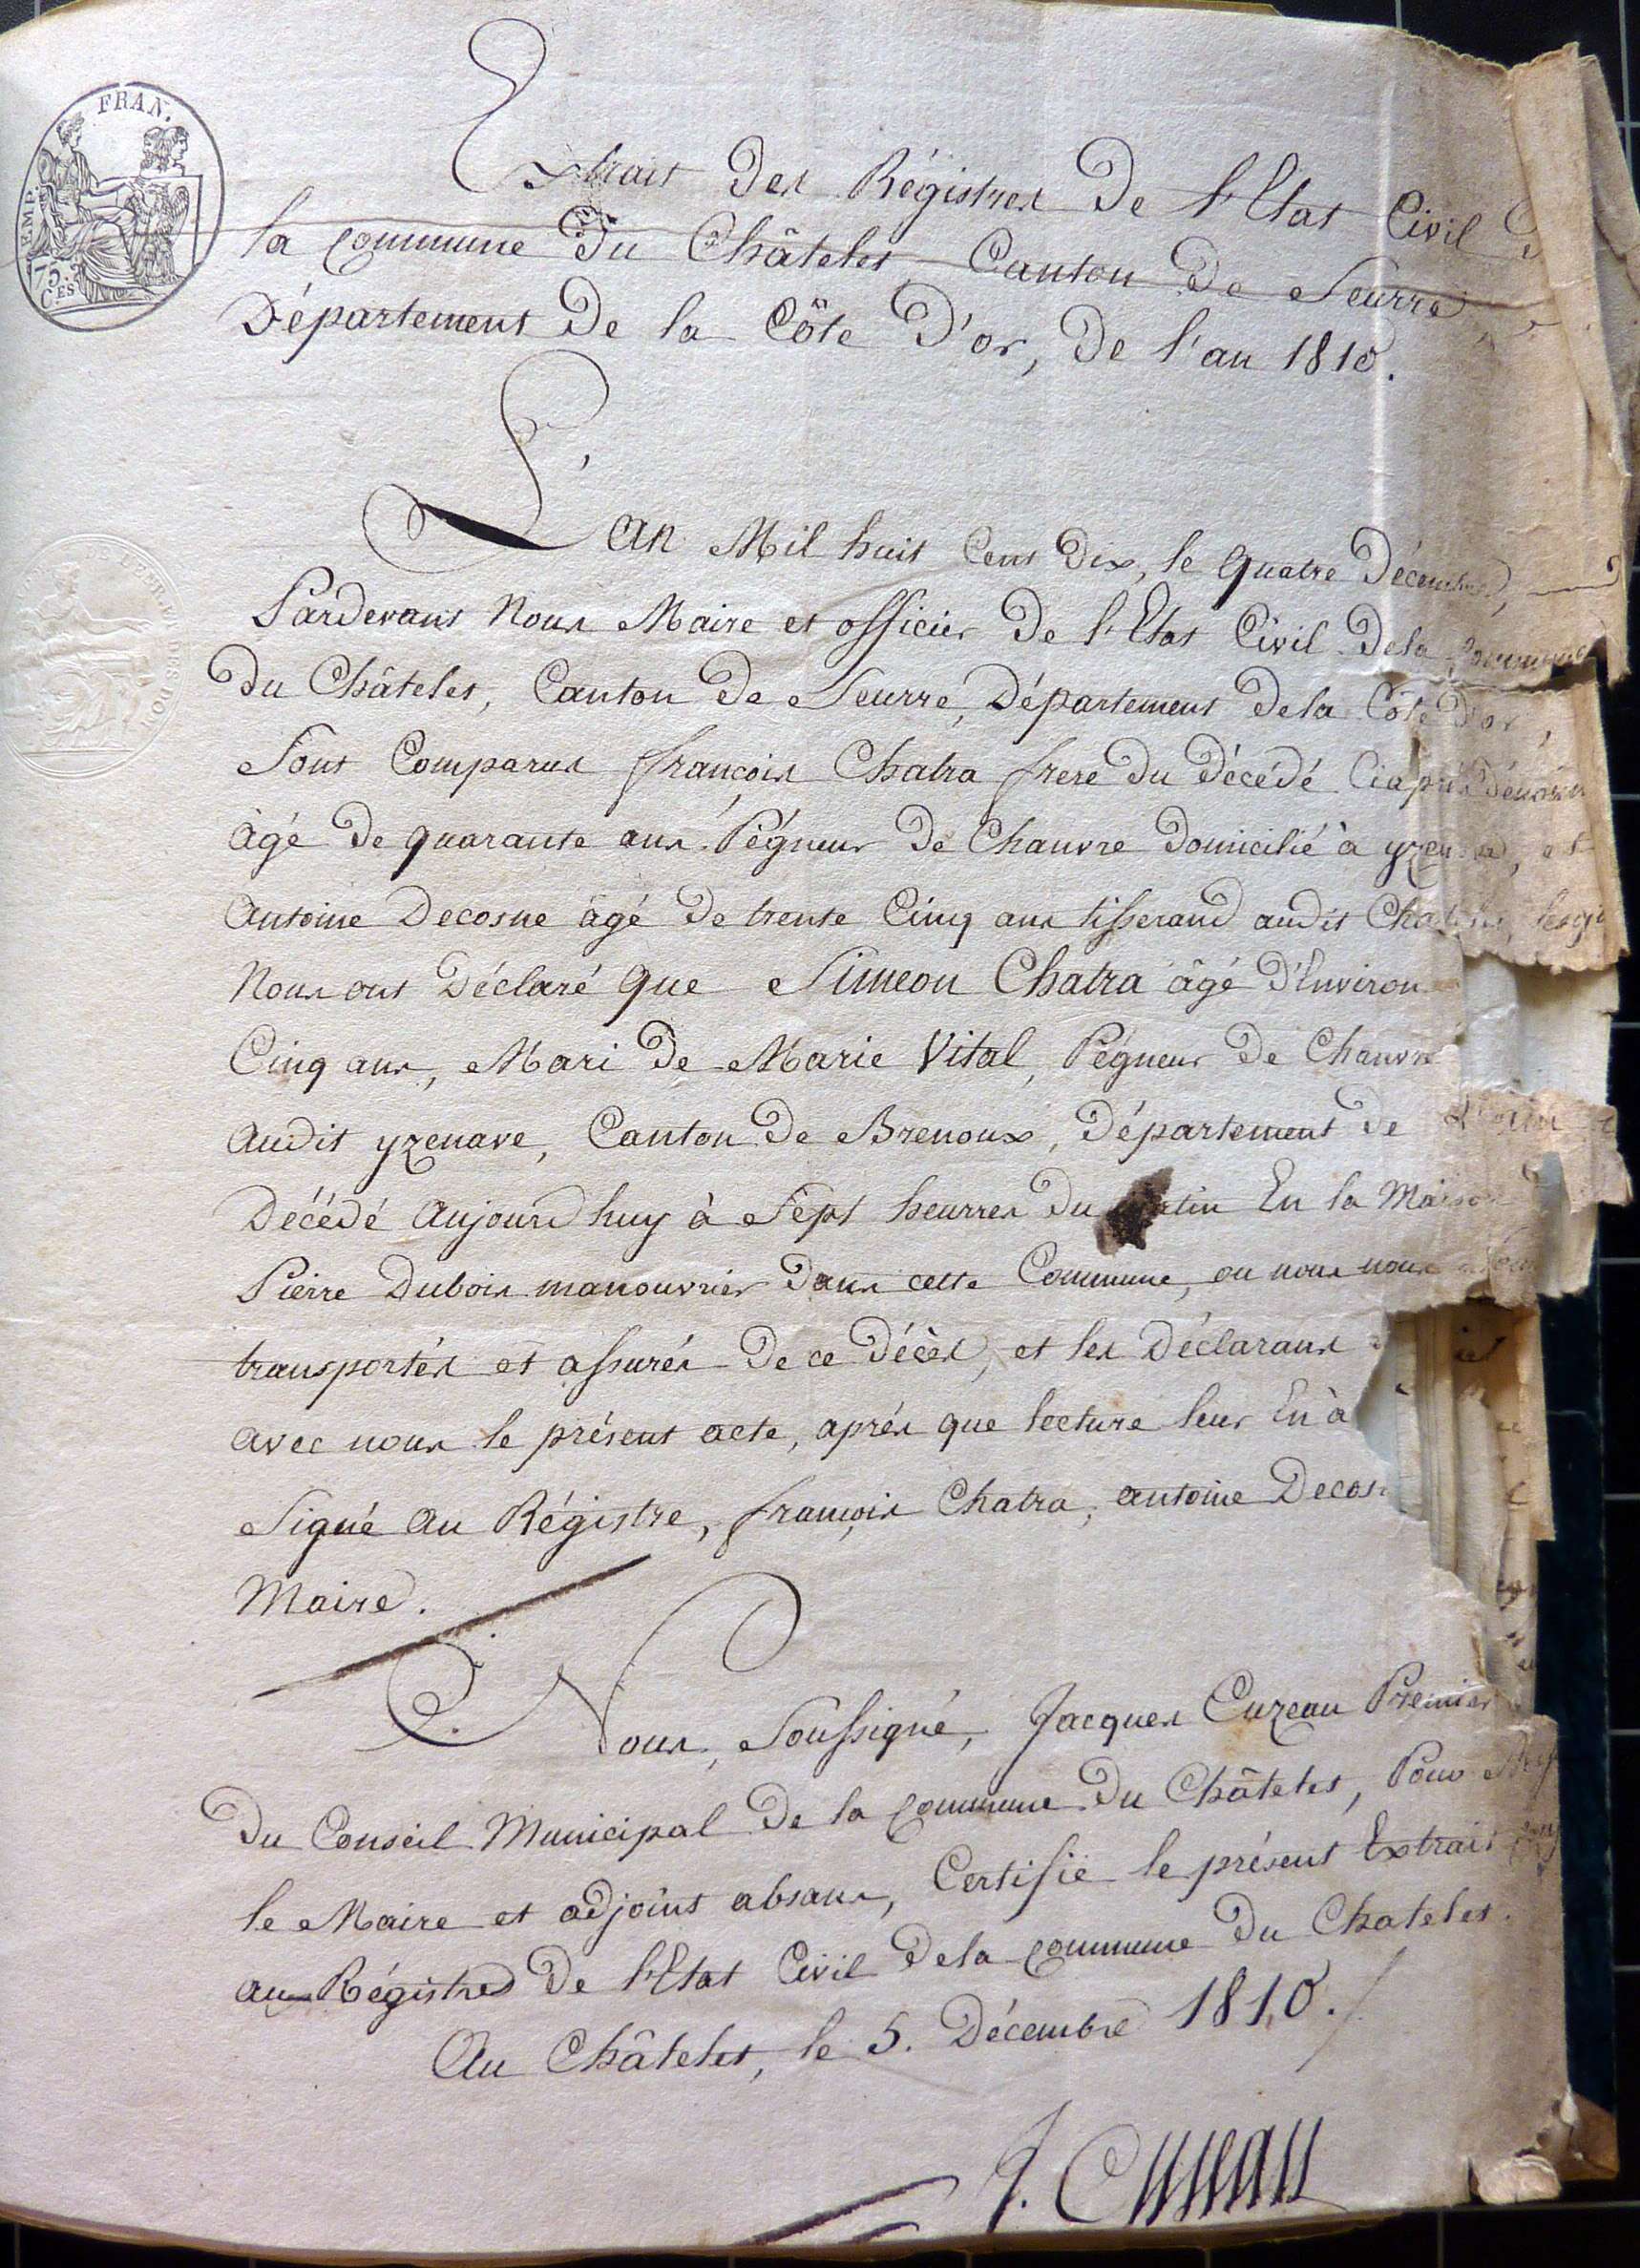 EMP. FRAN.
75 CES
Extrait des Régistres de l'Etat Civil
la commune du Châtelet, Canton de Seurre
Département de la Côte d'or, de l'an 1810.
L'an Mil huit Cent dix, le quatre Décembre,
Pardevant Nous Maire et officier de l'Etat Civil dela Commune
du Châtelet, Canton de Seurre, Département dela Côte d'or,
Sont Comparus françois Chatra frere du décédé Ciaprès
âgé de quarante ans Pégneur de Chanvre domicilié à et
antoine Decosne âgé de trente Cinq ans tisserand audit
Nous ont déclaré que Simeon Chatra âgé d'Environ
Cinq ans, Mari de Marie Vital, Pégneur de Chanvre
audit yzenave, Canton de Brenoux, Département de
Décédé aujourd huy à Sept heurres du En la Maison
Pierre Dubois manouvrier dans cette Commune, ou nous nous
transportés et assurés de ce décès, et les Déclarans
avec nous le présent acte, aprés que lecture leur En à
Signé au Régistre, françois Chatra, antoine
Maire.
Nous, Soussigné, Jacques Cuzeau Premier
du Conseil Municipal de la commune du Châtelet, Pour
le Maire et adjoint absans, Certifie le présent Extrait
au Régistre de l'Etat Civil dela commune du Chatelet.
Au Châtelet, le 5. Décembre 1810.
J. Cuzeau